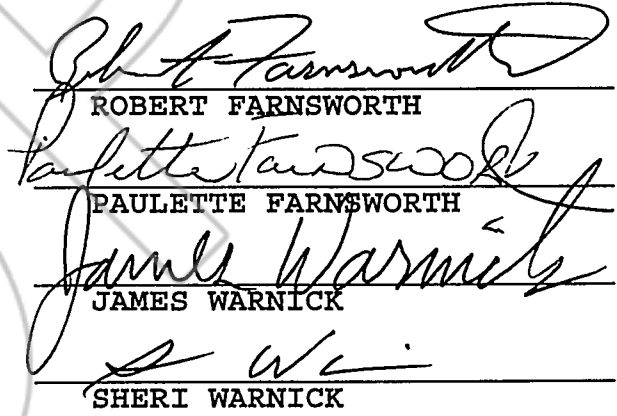 Robert Farnsworth
ROBERT FARNSWORTH
Paulette Farnsworth
PAULETTE FARNSWORTH
James Warnick
JAMES WARNICK
SHERI WARNICK